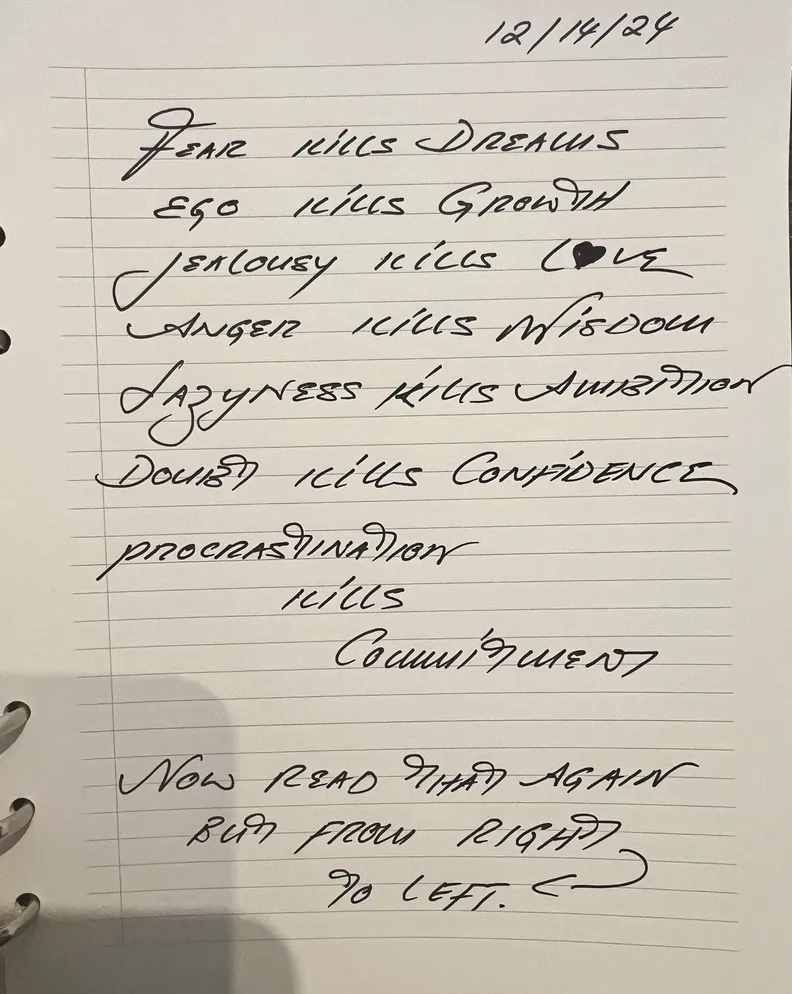 12/14/24
Fear kills Dreams
Ego kills Growth
Jealousey kills L♥ve
Anger kills Wisdom
Lazyness kills Ambition
Doubt kills Confidence
procrastination
kills
Commitment
Now read that again
but from right
to left.